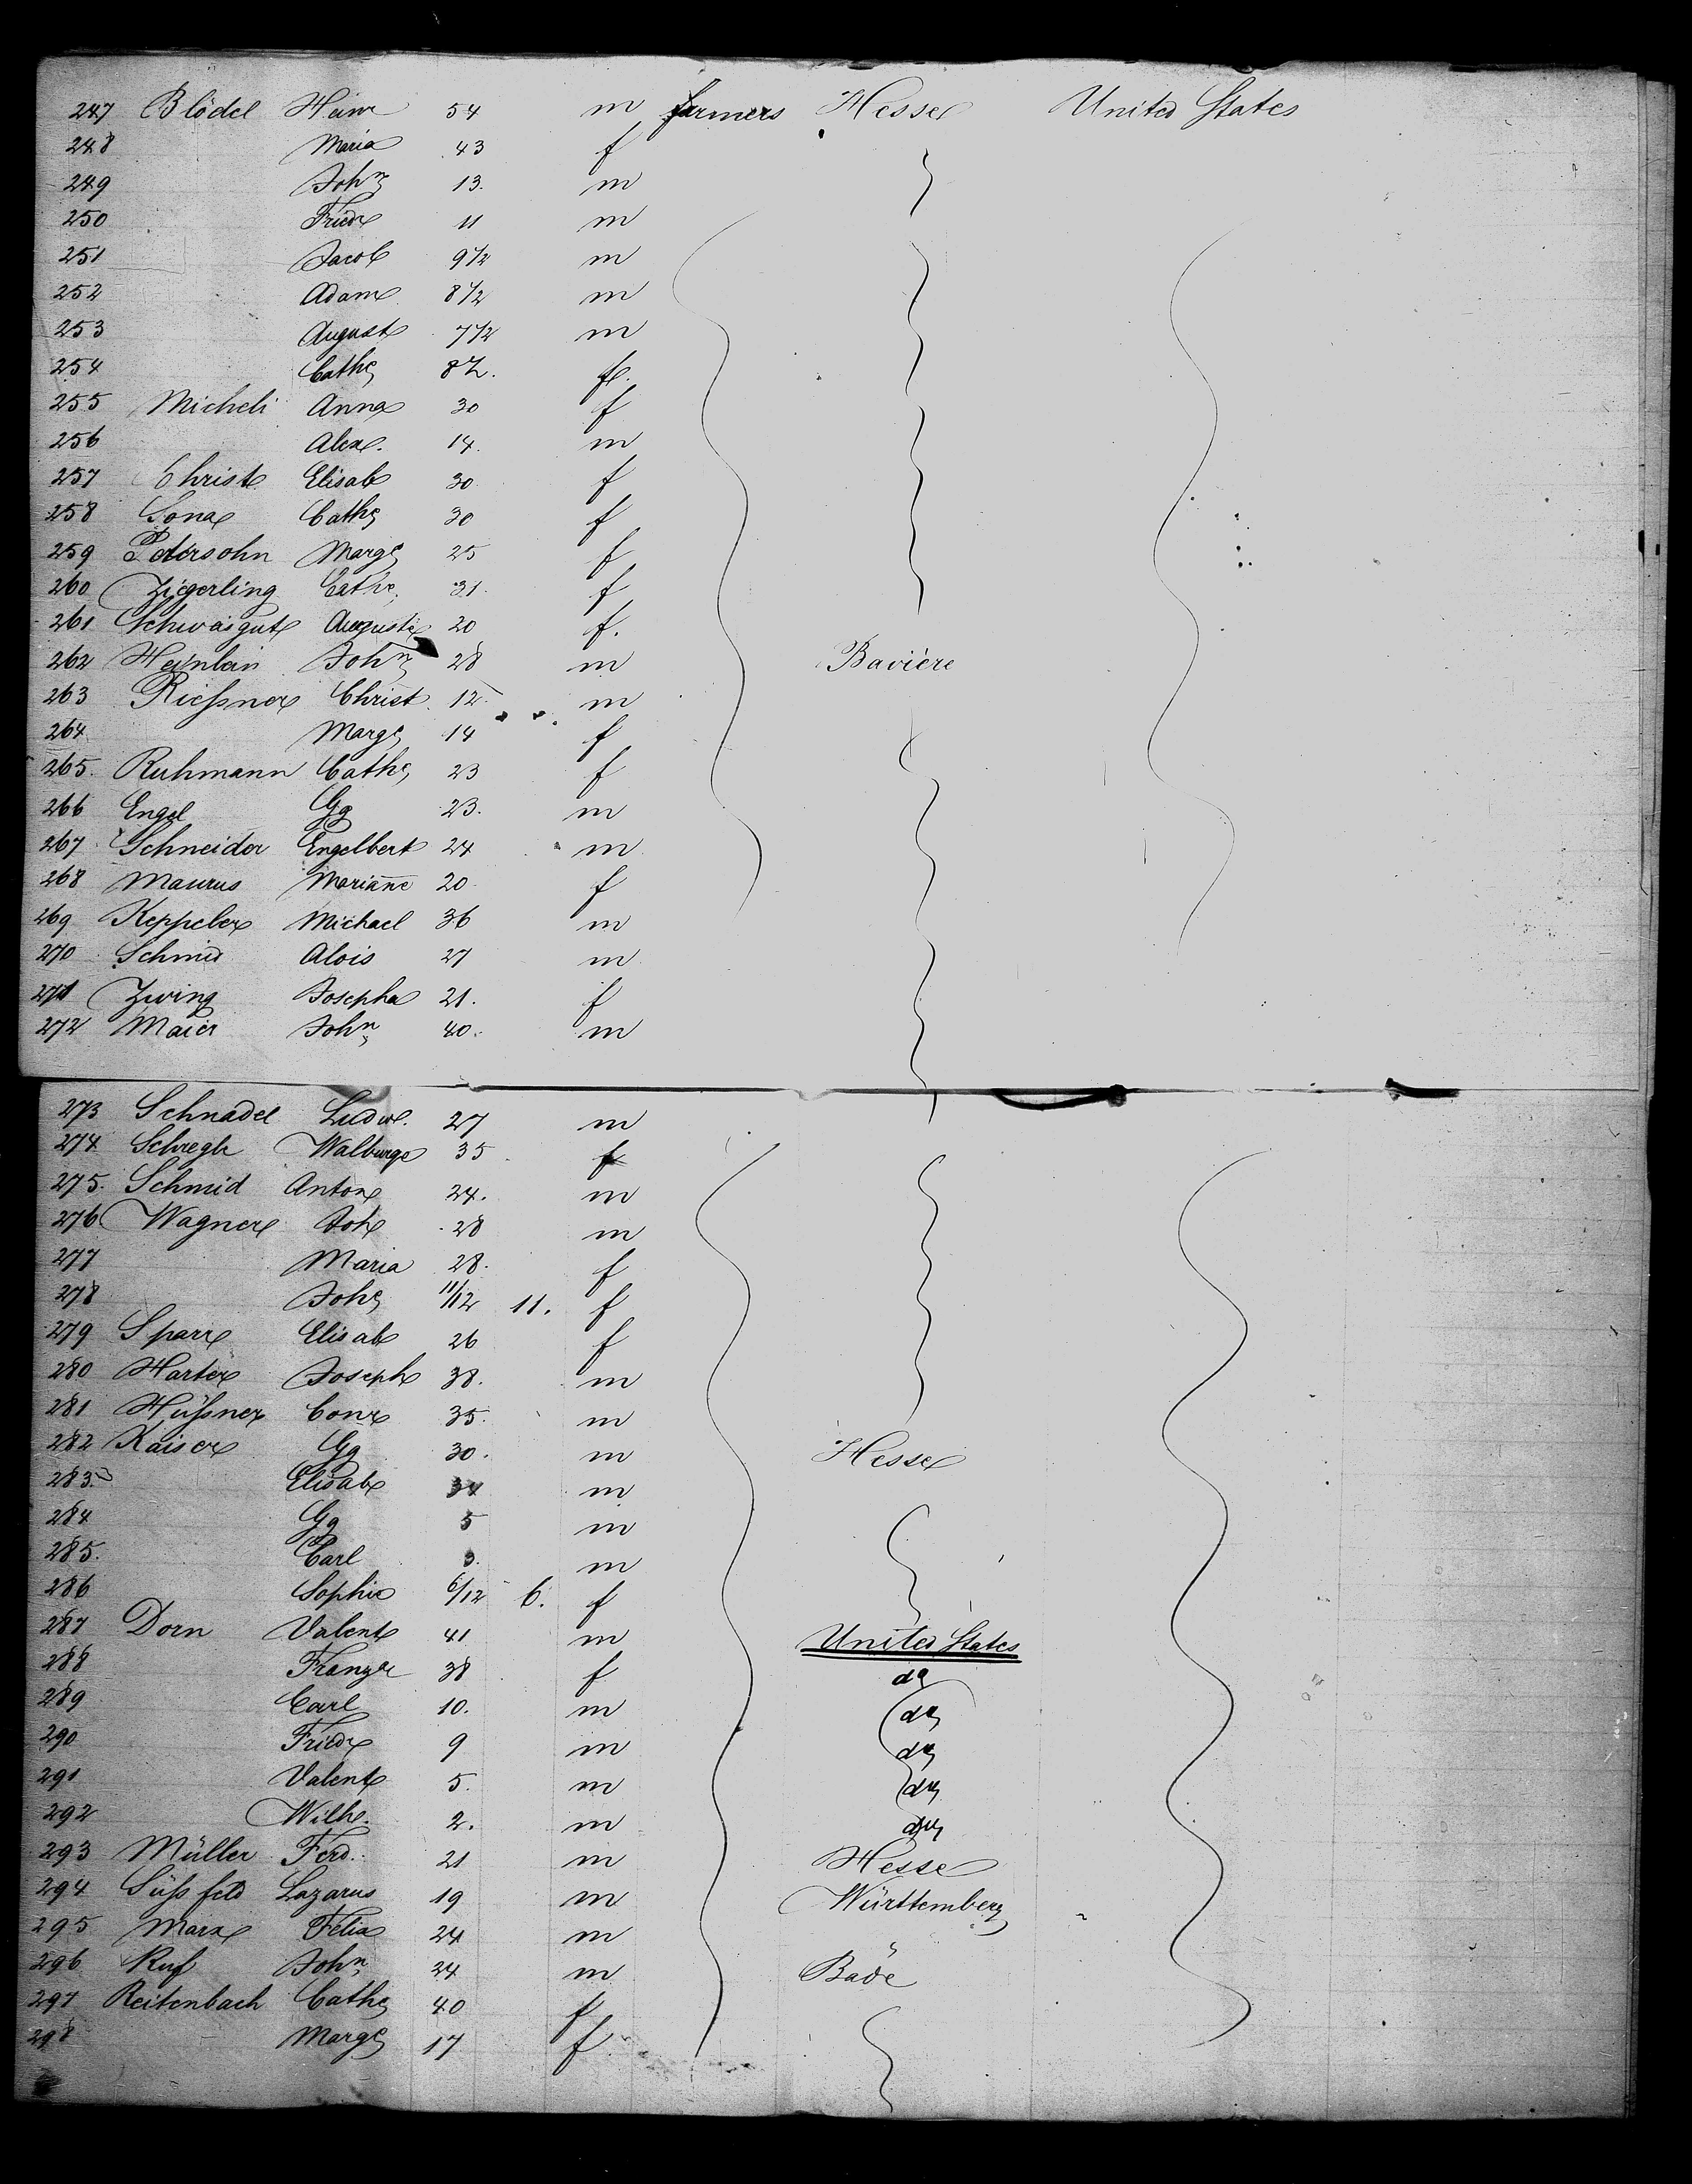 247 Blödel Heinr 54 m farmers Hesse United States
248 Maria 43 f
249 John 13. m
250 Friedr 11 m
251 Jacob 9 1/2 m
252 Adam 8 1/2 m
253 August 7 1/2 m
254 Cathe f.
255 Micheli Anna 30 f
256 Alex. 14. m
257 Christ Elisab 30. f
258 Cathe 30 f
259 Petersohn Marge 25 f
260 Zigerling Cathe 31. f
261 Schwaigut Auguste 20 f.
262 Heinlein John 28 m Bavière
263 Rießner Christ. 12. m
264 Marge 14 f
265. Ruhmann Cathe 23 f
266 Engel Gg 23. m
267 Schneider Engelbert 24 m
268 Maurus Marianne 20 f
269 Keppeler Michael 36 m
270 Schmid Alois 27 m
271 Zwing Josepha 21. f
272 Maier John 40. m
273 Schnadel Ludw. 27 m
274 Schregle Walburga 35 f
275. Schmid Anton 24. m
276 Wagner Joh 28 m
277 Maria 28. f
278 Johe 11/12 11. f
279 Sparr Elisab 26 f
280 Harter Joseph 38. m
281 Hüßner Conr 35. m
282 Kaiser Gg 30. m Hesse
283. Elisab 34 m
284 Gg 5 m
285. Carl 3. m
286 Sophie 6/12 6. f
287 Dorn Valent 41 m United States
288 Franza 38 f do
289 Carl 10. m do
290 Friedr 9 m do
291 Valent 5. m do
292 Wilh. 2. m do
293 Müller Ferd. 21 m Hesse
294 Süßfeld Lazarus 19 m Württemberg
295 Marx Felix 24 m "
296 Ruf John 24 m Bade
297 Reitenbach Cathe 40 f
298 Marge 17 f